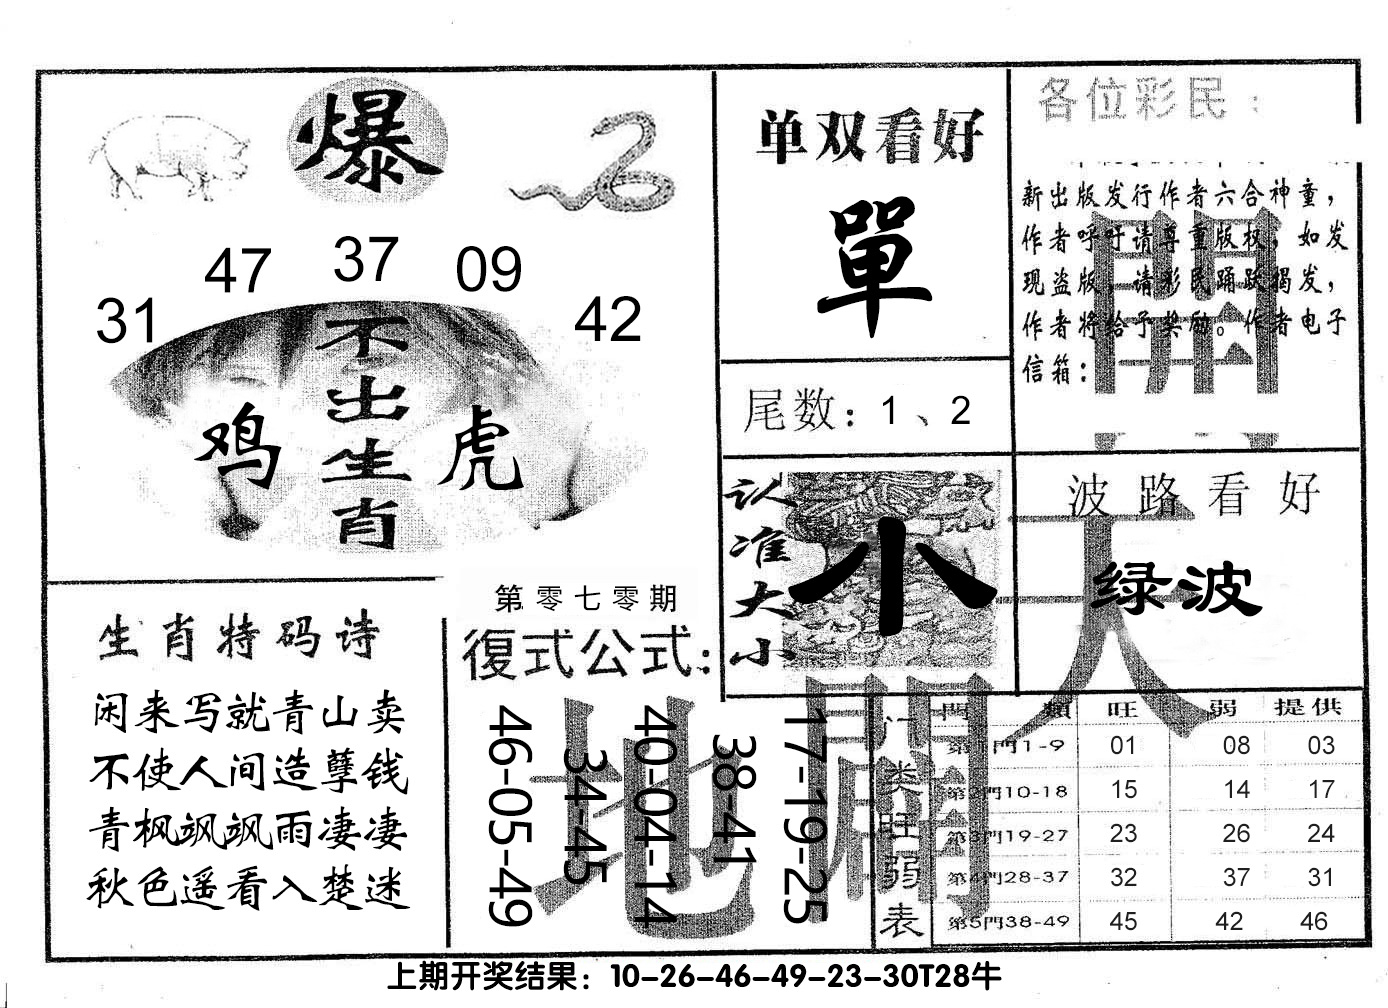 爆
31
47
37
09
42
不出生肖
鸡
虎
单双看好
單
尾数：1、2
各位彩民：
新出版发行作者六合神童，
作者呼吁请尊重版权，如发
现盗版，请彩民踊跃揭发，
作者将给予奖励。作者电子
信箱：
认准大小
小
波路看好
绿波
天
開
生肖特码诗
闲来写就青山卖
不使人间造孽钱
青枫飒飒雨凄凄
秋色遥看入楚迷
第零七零期
復式公式：
46-05-49
34-45
40-04-14
38-41
17-19-25
地
門类旺弱表
門 類 旺 弱 提供
第1門1-9 01 08 03
第2門10-18 15 14 17
第3門19-27 23 26 24
第4門28-37 32 37 31
第5門38-49 45 42 46
上期开奖结果：10-26-46-49-23-30T28牛